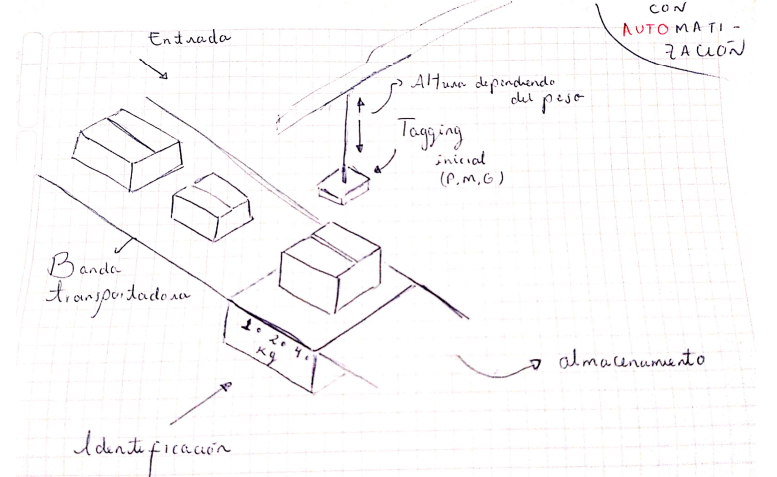 CON
AUTOMATI-
ZACIÓN
Entrada
Altura dependiendo
del peso
Tagging
inicial
(P, M, G)
Banda
transportadora
1. 2. 4.
Kg
almacenamiento
Identificación